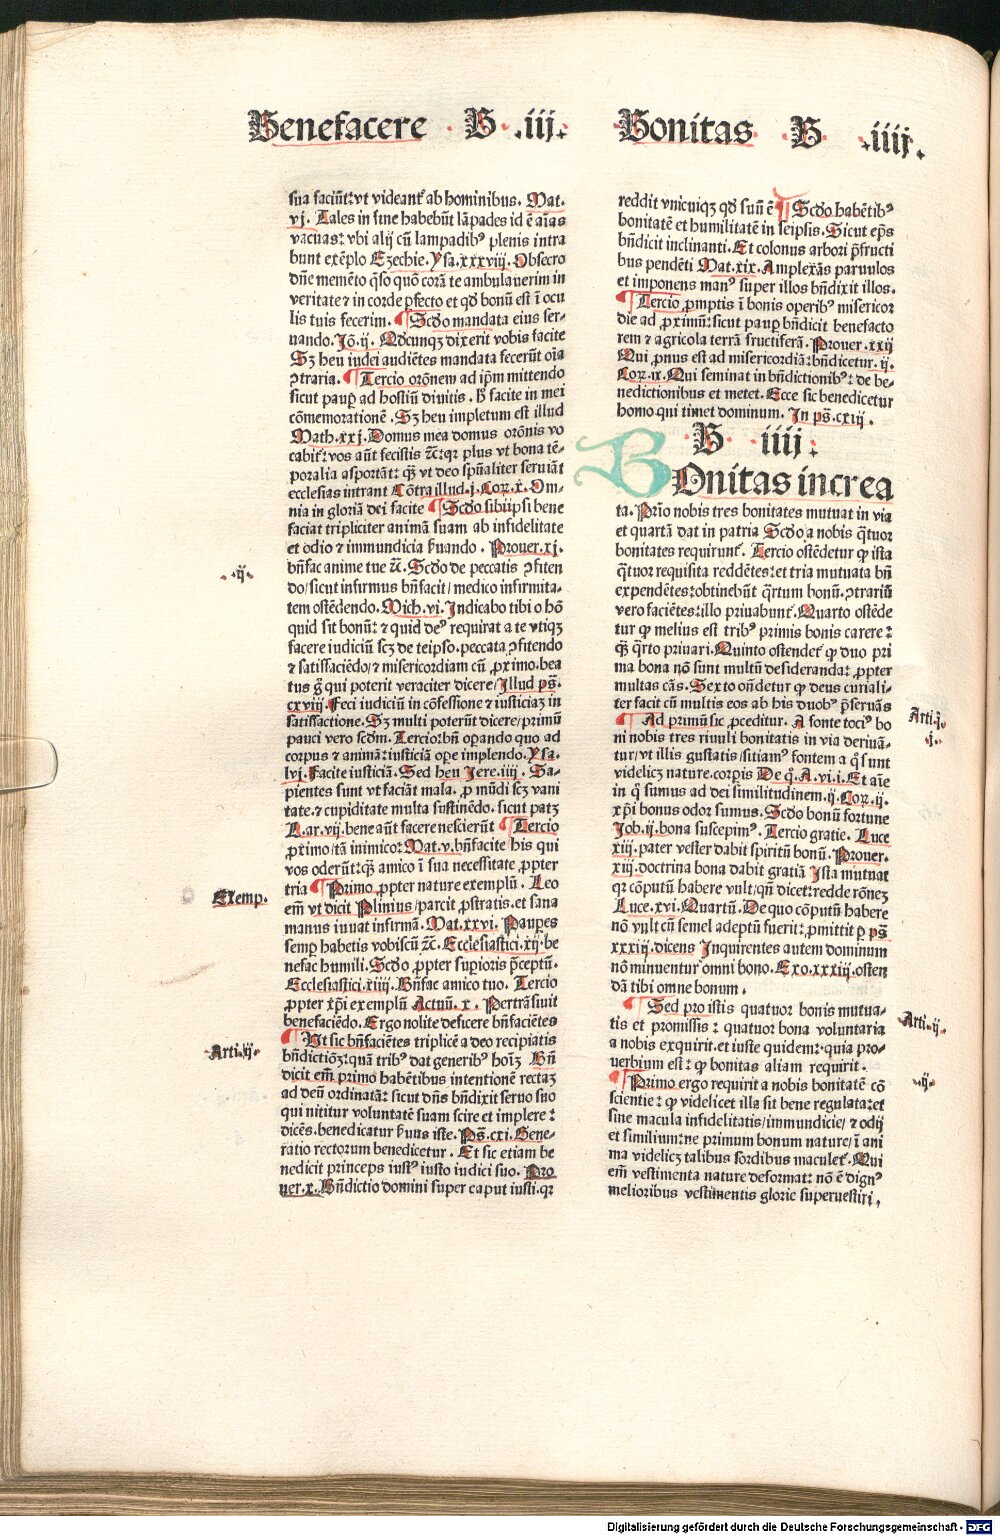 Benefacere B .iij.
Bonitas B .iiij.
sua faciūt: vt videant᷑ ab hominibus. Mat.
vj. Tales in fine habebūt lāpades id ē aīas
vacuas: vbi alij cū lampadibꝰ plenis intra
bunt exēplo Ezechie. Ysa. xxxviij. Obsecro
dn̄e memēto q̄so quō corā te ambulauerim in
veritate ⁊ in corde ꝑfecto et qd bonū est ī ocu
lis tuis fecerim. ¶ Scd̄o mandata eius ser-
uando. Jō. ij. Qd̄cunqꝫ dixerit vobis facite
Sꝫ heu iudei audiētes mandata fecerūt oīa
ꝯtraria. ¶ Tercio orōnem ad ip̄m mittendo
sicut pauꝑ ad hostiū diuitis. H̄ facite in mei
cōmemorationē. Sꝫ heu impletum est illud
Math. xxj. Domus mea domus orōnis vo
cabit᷑: vos aūt fecistis ⁊c̄: qꝛ plus vt bona tē-
poralia asportāt: qꝫ vt deo sp̄naliter seruiāt
ecclesias intrant Cōtra illud. j. Coꝝ. x. Om-
nia in gloriā dei facite ¶ Scd̄o sibiipsi bene
faciat tripliciter animā suam ab infidelitate
et odio ⁊ immundicia ẜuando. Prouer. xj.
bn̄fac anime tue ⁊c̄. Scd̄o de peccatis ꝯfiten
do/ sicut infirmus bn̄facit/ medico infirmita-
tem ostēdendo. Mich. vi. Indicabo tibi o hō
quid sit bonū: ⁊ quid deꝰ requirat a te vtiqꝫ
facere iudiciū scꝫ de teipso. peccata ꝯfitendo
⁊ satisfaciēdo/ ⁊ misericordiam cū ꝓximo. bea
tus g̊ qui poterit veraciter dicere/ Illud ps̄.
cxviij. Feci iudiciū in cōfessione ⁊ iusticiaꝫ in
satisfactione. Sꝫ multi poterūt dicere/ primū
pauci vero scd̄m. Tercio: bn̄ oꝑando quo ad
corpus ⁊ animā: iusticiā oꝑe implendo. Ysa.
lvj. Facite iusticiā. Sed heu Jere. iiij. Sa-
pientes sunt vt faciāt mala. ꝓ mūdi scꝫ vani
tate. ⁊ cupiditate multa sustinēdo. sicut patꝫ
A. ar. vij. bene aūt facere nescierūt ¶ Tercio
ꝓximo/ tā inimico: Mat. v. bn̄facite his qui
vos oderūt: qꝫ amico ī sua necessitate ꝓpter
tria ¶ Primo ꝓpter nature exemplū. Leo
em̄ vt dicit Plinius/ parcit ꝓstratis. et sana
manus iuuat infirmā. Mat. xxvi. Pauꝑes
semꝑ habetis vobiscū ⁊c̄. Ecclesiastici. xij. be
nefac humili. Scd̄o ꝓpter suꝑioris p̄ceptū.
Ecclesiastici. xiiij. Bn̄fac amico tuo. Tercio
ꝓpter xp̄i exemplū Actuū. x. Pertrāsiuit
benefaciēdo. Ergo nolite deficere bn̄faciētes
¶ Ut sic bn̄faciētes triplicē a deo recipiatis
bn̄dictiōꝫ: quā tribꝰ dat generibꝰ hoīꝫ Bn̄
dicit em̄ primo habētibus intentionē rectaꝫ
ad deū ordinatā: sicut dn̄s bn̄dixit seruo suo
qui nititur voluntatē suam scire et implere:
dicēs. benedicatur ẜuus iste. Ps̄. cxi. Gene-
ratio rectorum benedicetur. Et sic etiam be
nedicit princeps iustꝰ iusto iudici suo. Pro
uer. x. Bn̄dictio domini super caput iusti. qꝛ
.ij.
Exemp.
Arti. ij.
reddit vnicuiqꝫ qd̄ suū ē ¶ Scd̄o habētibꝰ
bonitatē et humilitatē in seipsis. Sicut ep̄s
bn̄dicit inclinanti. Et colonus arbori p̄fructi
bus pendēti Mat. xix. Amplexās paruulos
et imponens manꝰ super illos bn̄dixit illos.
¶ Tercio ꝓmptis ī bonis operibꝰ misericor
die ad ꝓximū: sicut pauꝑ bn̄dicit benefacto
rem ⁊ agricola terrā fructiferā. Prouer. xxij
Qui ꝓnus est ad misericordiā: bn̄dicetur. ij.
Coꝝ. ix. Qui seminat in bn̄dictionibꝰ: de be-
nedictionibus et metet. Ecce sic benedicetur
homo qui timet dominum. In ps̄. cxiij.
B iiij.
BOnitas increa
ta. Prīo nobis tres bonitates mutuat in via
et quartā dat in patria Scd̄o a nobis q̄tuor
bonitates requirunt᷑. Tercio ostēdetur ꝙ ista
q̄tuor requisita reddētes: et tria mutuata bn̄
expendētes: obtinebūt q̄rtum bonū. ꝯtrariū
vero faciētes: illo priuabunt᷑. Quarto ostēde
tur ꝙ melius est tribꝰ primis bonis carere:
qꝫ q̄rto priuari. Quinto ostendet᷑ ꝙ duo pri
ma bona nō sunt multū desideranda: ꝓpter
multas cās. Sexto on̄detur ꝙ deus curiali-
ter facit cū multis eos ab his duobꝰ p̄seruās
¶ Ad primū sic ꝓceditur. A fonte tociꝰ bo
ni nobis tres riuuli bonitatis in via deriuā-
tur/ vt illis gustatis/ sitiamꝰ fontem a q̊ sunt
videlicꝫ nature. corꝑis De q̊. A. vi. i. Et aīe
in q̊ sumus ad dei similitudinem. ij. Coꝝ. ij.
xp̄i bonus odor sumus. Scd̄o bonū fortune
Job. ij. bona suscepimꝰ. Tercio gratie. Luce
xiij. pater vester dabit spiritū bonū. Prouer.
xiij. doctrina bona dabit gratiā Ista mutuat
qꝛ cōputū habere vult/ qn̄ dicet: redde rōneꝫ
Luce. xvi. Quartū. De quo cōputū habere
nō vult cū semel adeptū fuerit: ꝓmittit ꝑ ps̄
xxxiij. dicens Inquirentes autem dominum
nō minuentur omni bono. Exo. xxxiij. osten
dā tibi omne bonum.
¶ Sed pro istis quatuor bonis mutua-
tis et promissis: quatuor bona voluntaria
a nobis exquirit. et iuste quidem: quia pro-
uerbium est: ꝙ bonitas aliam requirit.
¶ Primo ergo requirit a nobis bonitatē cō
scientie: ꝙ videlicet illa sit bene regulata: et
sine macula infidelitatis/ immundicie/ ⁊ odij
et similium: ne primum bonum nature/ ī ani
ma videlicꝫ talibus sordibus maculet᷑. Qui
em̄ vestimenta nature deformat: nō ē dignꝰ
melioribus vestimentis glorie superuestiri,
Arti. j.
.j.
Arti. ij.
.ij.
Digitalisierung gefördert durch die Deutsche Forschungsgemeinschaft - DFG